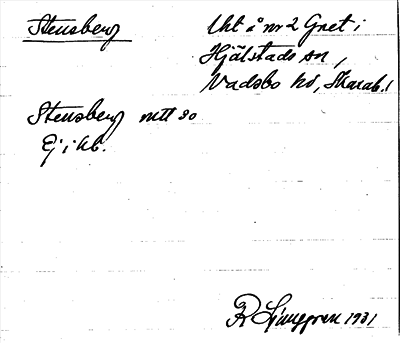 Stensberg
Uht å nr 2 Gnet i
Hjälstads sn,
Vadsbo hd, Skarab. l
Stensberg mtl 90
Ej i kb.
R Ljunggren 1931